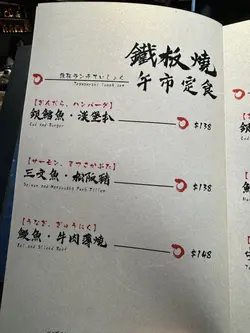 鐵板燒
午市定食
鉄板ランチていしょく
Teppanyaki Lunch Set
【ぎんだら、ハンバーグ】
銀鱈魚・漢堡扒 $138
Cod and Burger
【サーモン、まつさかぶた】
三文魚・松阪豬 $138
Salmon and Matsusaka Pork
【うなぎ、ぎゅうにく】
鰻魚・牛肉薄燒 $148
Eel and Sliced Beef